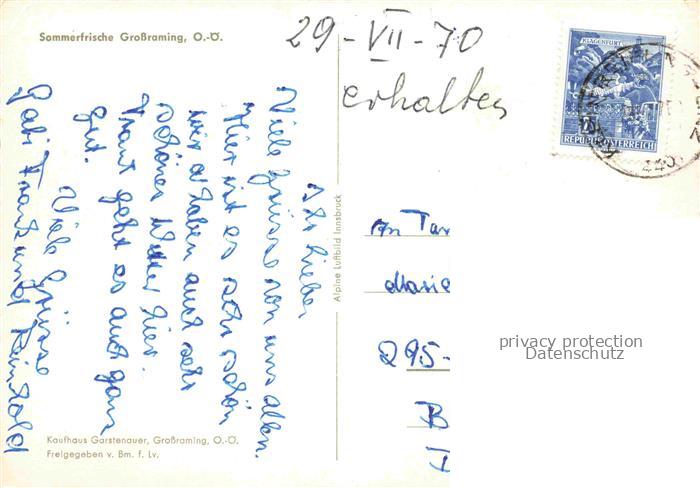 Sommerfrische Großraming, O.-Ö.
29-VII-70
erhalten
KLAGENFURT
REPUBLIK ÖSTERREICH
Ihr Lieben
Viele Grüsse von uns allen.
Hier ist es sehr schön
wir haben auch sehr
schönes Wetter hier.
Traut geht es auch ganz
gut.
Viele Grüsse
Gabi Traut und Reinhold
Alpine Luftbild Innsbruck
An Tan
Marie
295-
B
Kaufhaus Garstenauer, Großraming, O.-Ö.
Freigegeben v. Bm. f. Lv.
privacy protection
Datenschutz